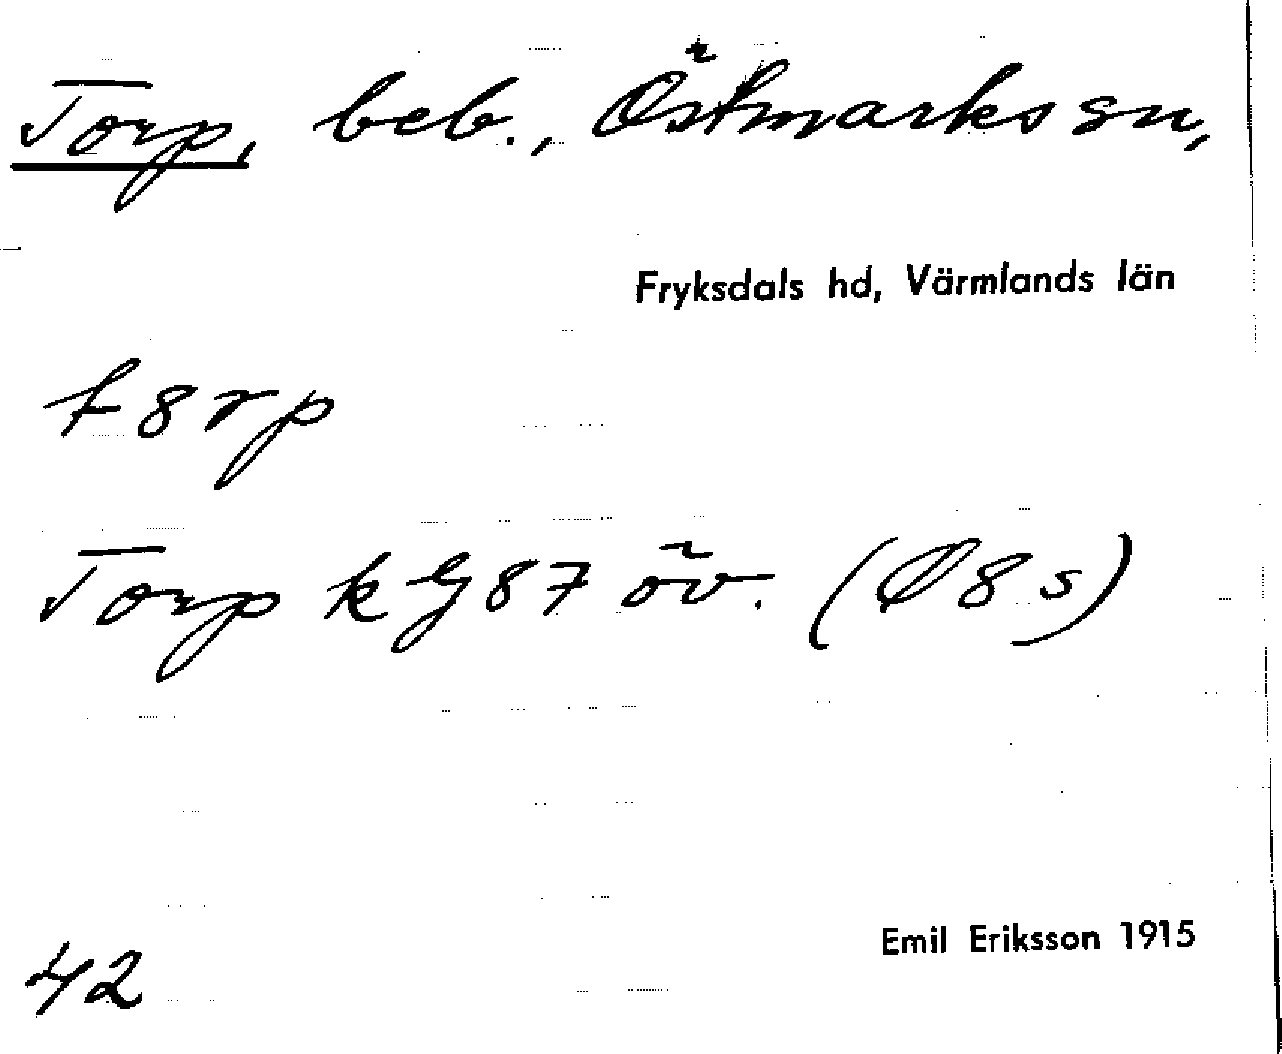 Torp, beb., Östmarks sn,
Fryksdals hd, Värmlands län
t8rp
Torp k G 87 öv. (Ø8s)
Emil Eriksson 1915
42